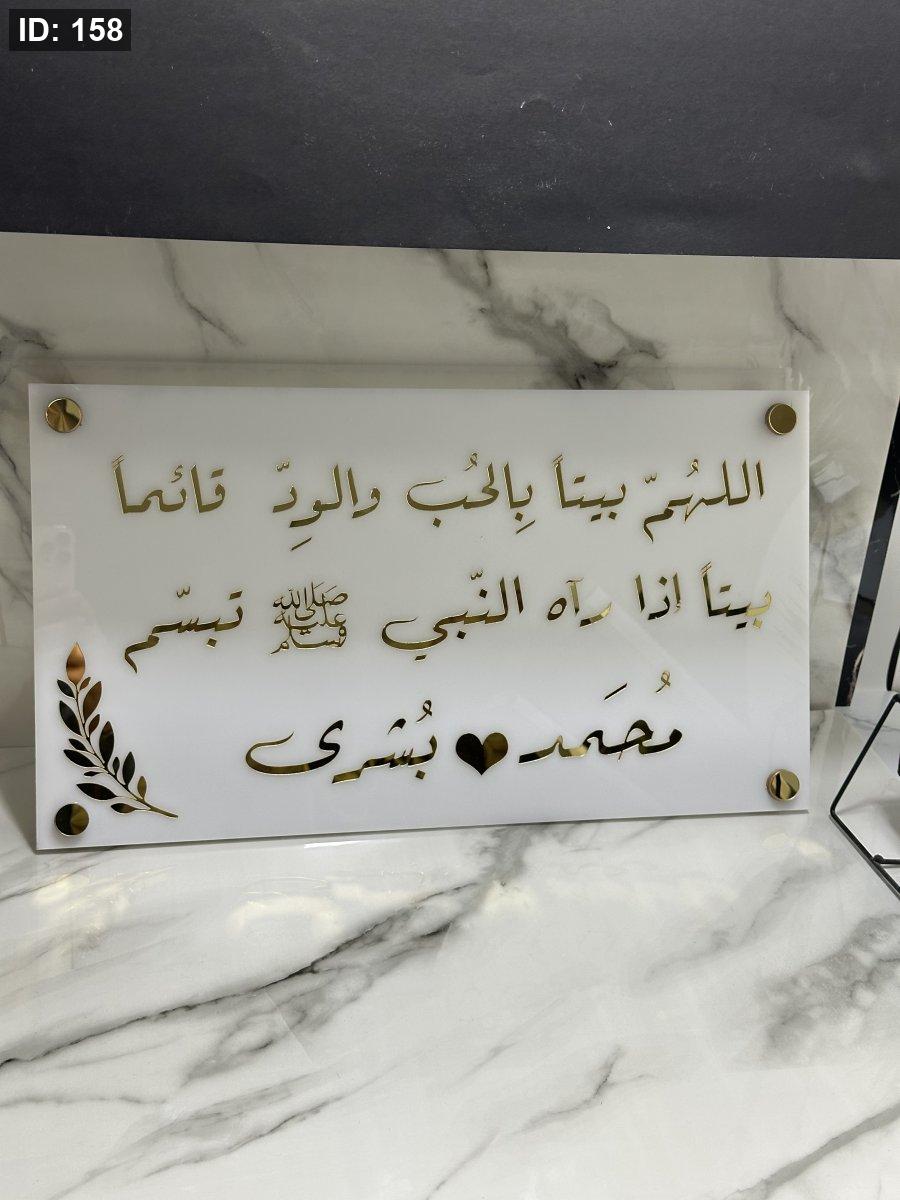 ID: 158
اللهُمّ بيتاً بِالحُب والوِدّ قائماً
بيتاً إذا رآه النّبي ﷺ تبسّم
مُحَمد ♥ بُشرى